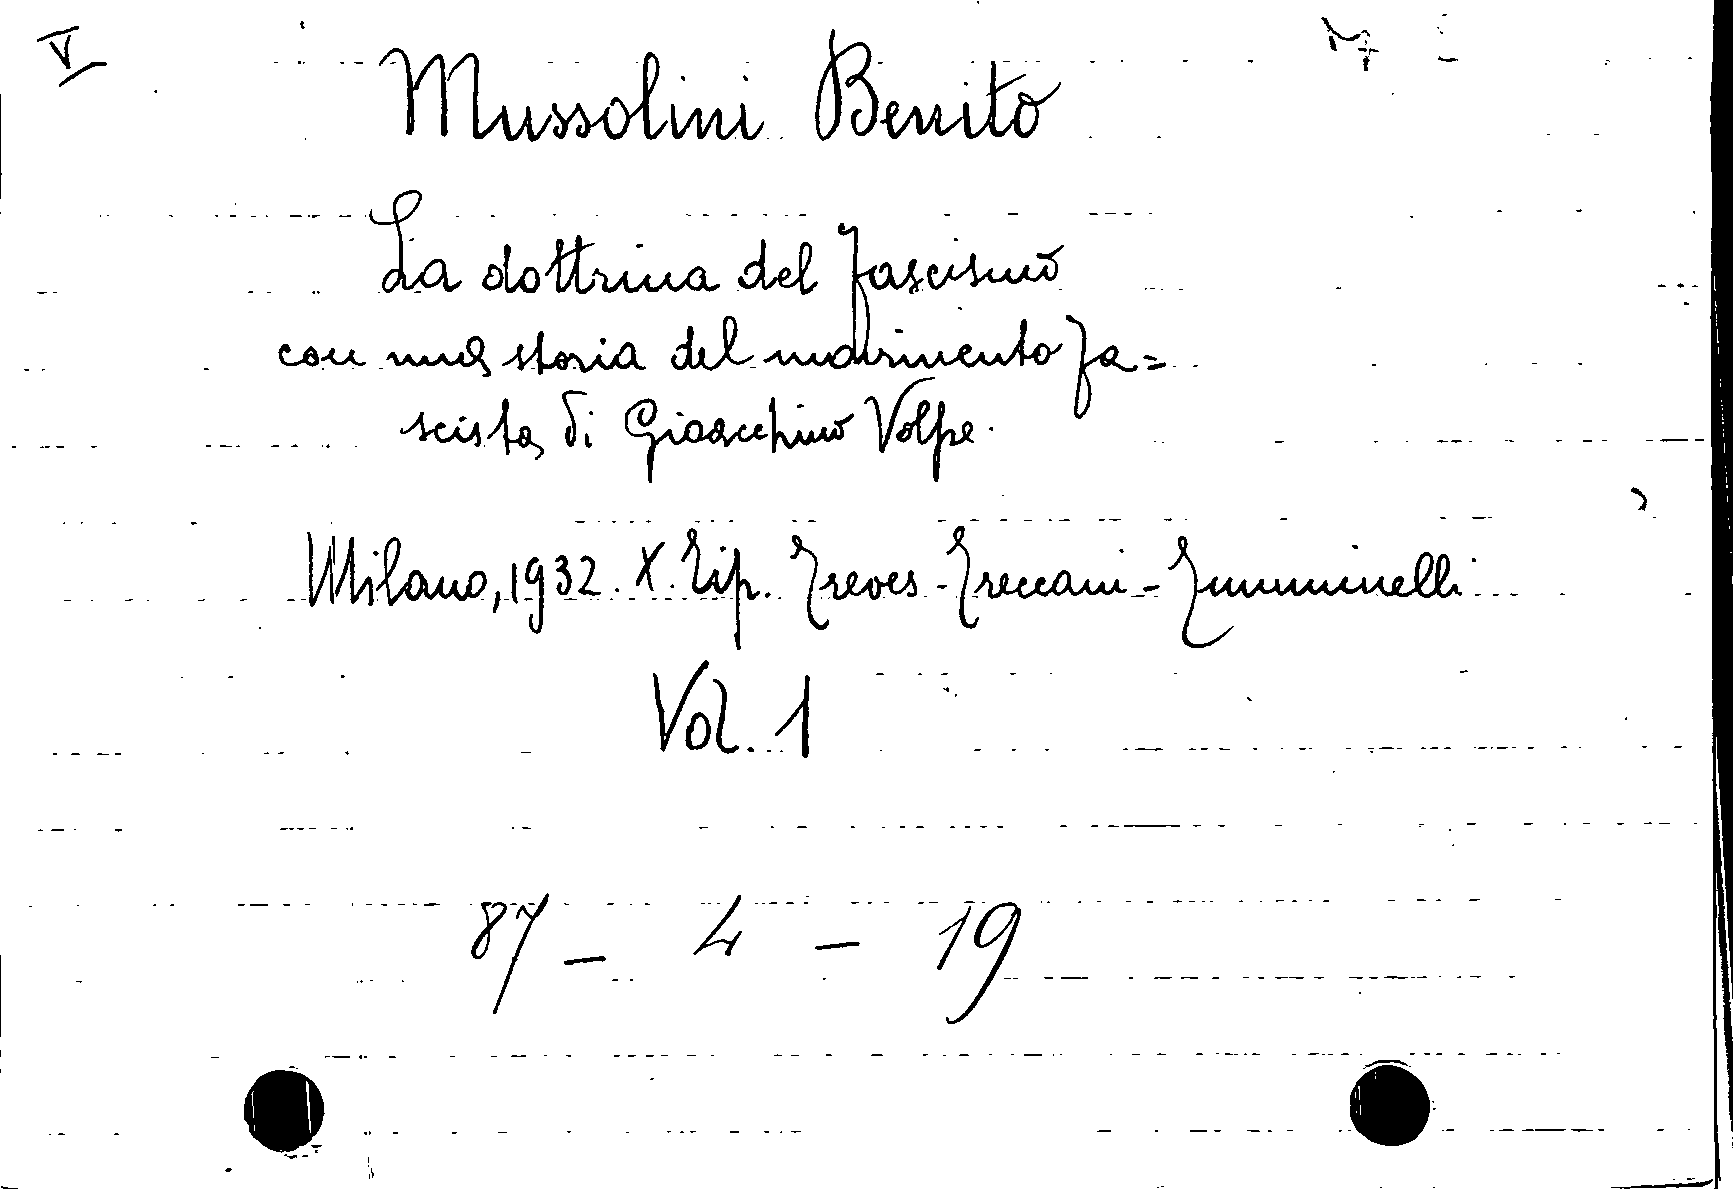 V
Mussolini Benito
La dottrina del fascismo
con una storia del movimento fa=
scista di Gioacchino Volpe.
Milano, 1932. X. Tip. Treves-Treccani-Tumminelli
Vol. 1
87 - 4 - 19